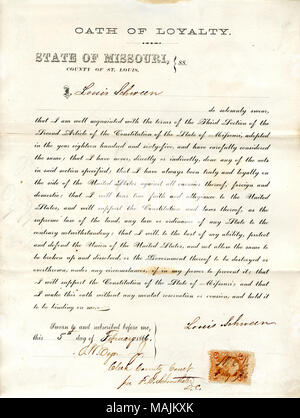 OATH OF LOYALTY.
STATE OF MISSOURI, } SS.
COUNTY OF ST. LOUIS.
I, Louis Schween
do solemnly swear,
that I am well acquainted with the terms of the Third Section of the
Second Article of the Constitution of the State of Missouri, adopted
in the year eighteen hundred and sixty-five, and have carefully considered
the same; that I have never, directly or indirectly, done any of the acts
in said section specified; that I have always been truly and loyally on
the side of the United States against all enemies thereof, foreign and
domestic; that I will bear true faith and allegiance to the United
States, and will support the Constitution and laws thereof, as the
supreme law of the land, any law or ordinance of any State to the
contrary notwithstanding; that I will, to the best of my ability, protect
and defend the Union of the United States, and not allow the same to
be broken up and dissolved, or the Government thereof to be destroyed or
overthrown, under any circumstances, if in my power to prevent it; that I
will support the Constitution of the State of Missouri; and that I
make this oath without any mental reservation or evasion, and hold it
to be binding on me.
Louis Schween
Sworn to and subscribed before me,
this 5th day of
Clerk County Court
D.C.
alamy
Image ID: MAJKXK
www.alamy.com